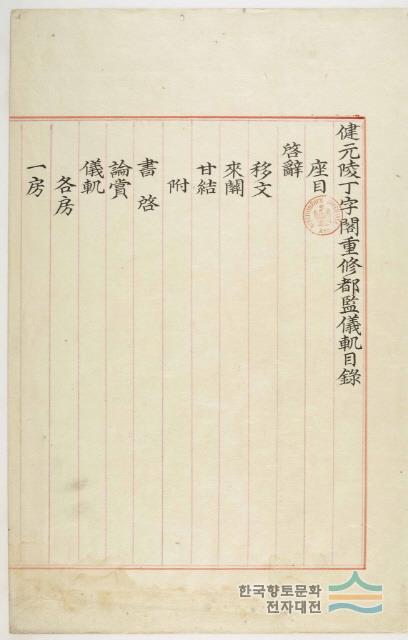 健元陵丁字閣重修都監儀軌目錄
座目
啓辭
移文
來關
甘結
附
書啓
論賞
儀軌
各房
一房
한국향토문화
전자대전